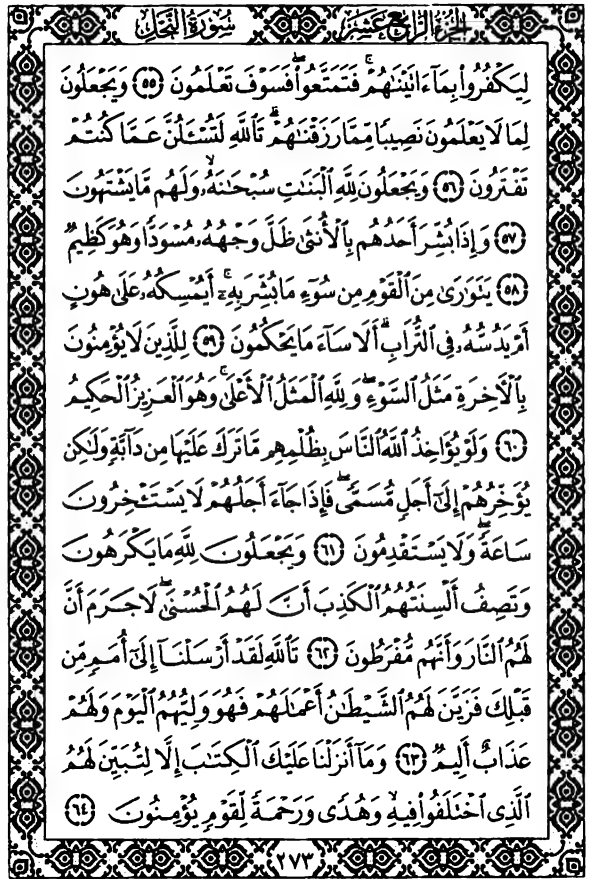 الجزء الرابع عشر سورة النحل
لِيَكْفُرُوا۟ بِمَآ ءَاتَيْنَٰهُمْ ۚ فَتَمَتَّعُوا۟ ۖ فَسَوْفَ تَعْلَمُونَ ٥٥ وَيَجْعَلُونَ
لِمَا لَا يَعْلَمُونَ نَصِيبًا مِّمَّا رَزَقْنَٰهُمْ ۗ تَٱللَّهِ لَتُسْـَٔلُنَّ عَمَّا كُنتُمْ
تَفْتَرُونَ ٥٦ وَيَجْعَلُونَ لِلَّهِ ٱلْبَنَٰتِ سُبْحَٰنَهُۥ ۙ وَلَهُم مَّا يَشْتَهُونَ
٥٧ وَإِذَا بُشِّرَ أَحَدُهُم بِٱلْأُنثَىٰ ظَلَّ وَجْهُهُۥ مُسْوَدًّا وَهُوَ كَظِيمٌ
٥٨ يَتَوَٰرَىٰ مِنَ ٱلْقَوْمِ مِن سُوٓءِ مَا بُشِّرَ بِهِۦٓ ۚ أَيُمْسِكُهُۥ عَلَىٰ هُونٍ
أَمْ يَدُسُّهُۥ فِى ٱلتُّرَابِ ۗ أَلَا سَآءَ مَا يَحْكُمُونَ ٥٩ لِلَّذِينَ لَا يُؤْمِنُونَ
بِٱلْءَاخِرَةِ مَثَلُ ٱلسَّوْءِ ۖ وَلِلَّهِ ٱلْمَثَلُ ٱلْأَعْلَىٰ ۚ وَهُوَ ٱلْعَزِيزُ ٱلْحَكِيمُ
٦٠ وَلَوْ يُؤَاخِذُ ٱللَّهُ ٱلنَّاسَ بِظُلْمِهِم مَّا تَرَكَ عَلَيْهَا مِن دَآبَّةٍ وَلَٰكِن
يُؤَخِّرُهُمْ إِلَىٰٓ أَجَلٍ مُّسَمًّى ۖ فَإِذَا جَآءَ أَجَلُهُمْ لَا يَسْتَـْٔخِرُونَ
سَاعَةً ۖ وَلَا يَسْتَقْدِمُونَ ٦١ وَيَجْعَلُونَ لِلَّهِ مَا يَكْرَهُونَ
وَتَصِفُ أَلْسِنَتُهُمُ ٱلْكَذِبَ أَنَّ لَهُمُ ٱلْحُسْنَىٰ ۖ لَا جَرَمَ أَنَّ
لَهُمُ ٱلنَّارَ وَأَنَّهُم مُّفْرَطُونَ ٦٢ تَٱللَّهِ لَقَدْ أَرْسَلْنَآ إِلَىٰٓ أُمَمٍ مِّن
قَبْلِكَ فَزَيَّنَ لَهُمُ ٱلشَّيْطَٰنُ أَعْمَٰلَهُمْ فَهُوَ وَلِيُّهُمُ ٱلْيَوْمَ وَلَهُمْ
عَذَابٌ أَلِيمٌ ٦٣ وَمَآ أَنزَلْنَا عَلَيْكَ ٱلْكِتَٰبَ إِلَّا لِتُبَيِّنَ لَهُمُ
ٱلَّذِى ٱخْتَلَفُوا۟ فِيهِ ۙ وَهُدًى وَرَحْمَةً لِّقَوْمٍ يُؤْمِنُونَ ٦٤
٢٧٣